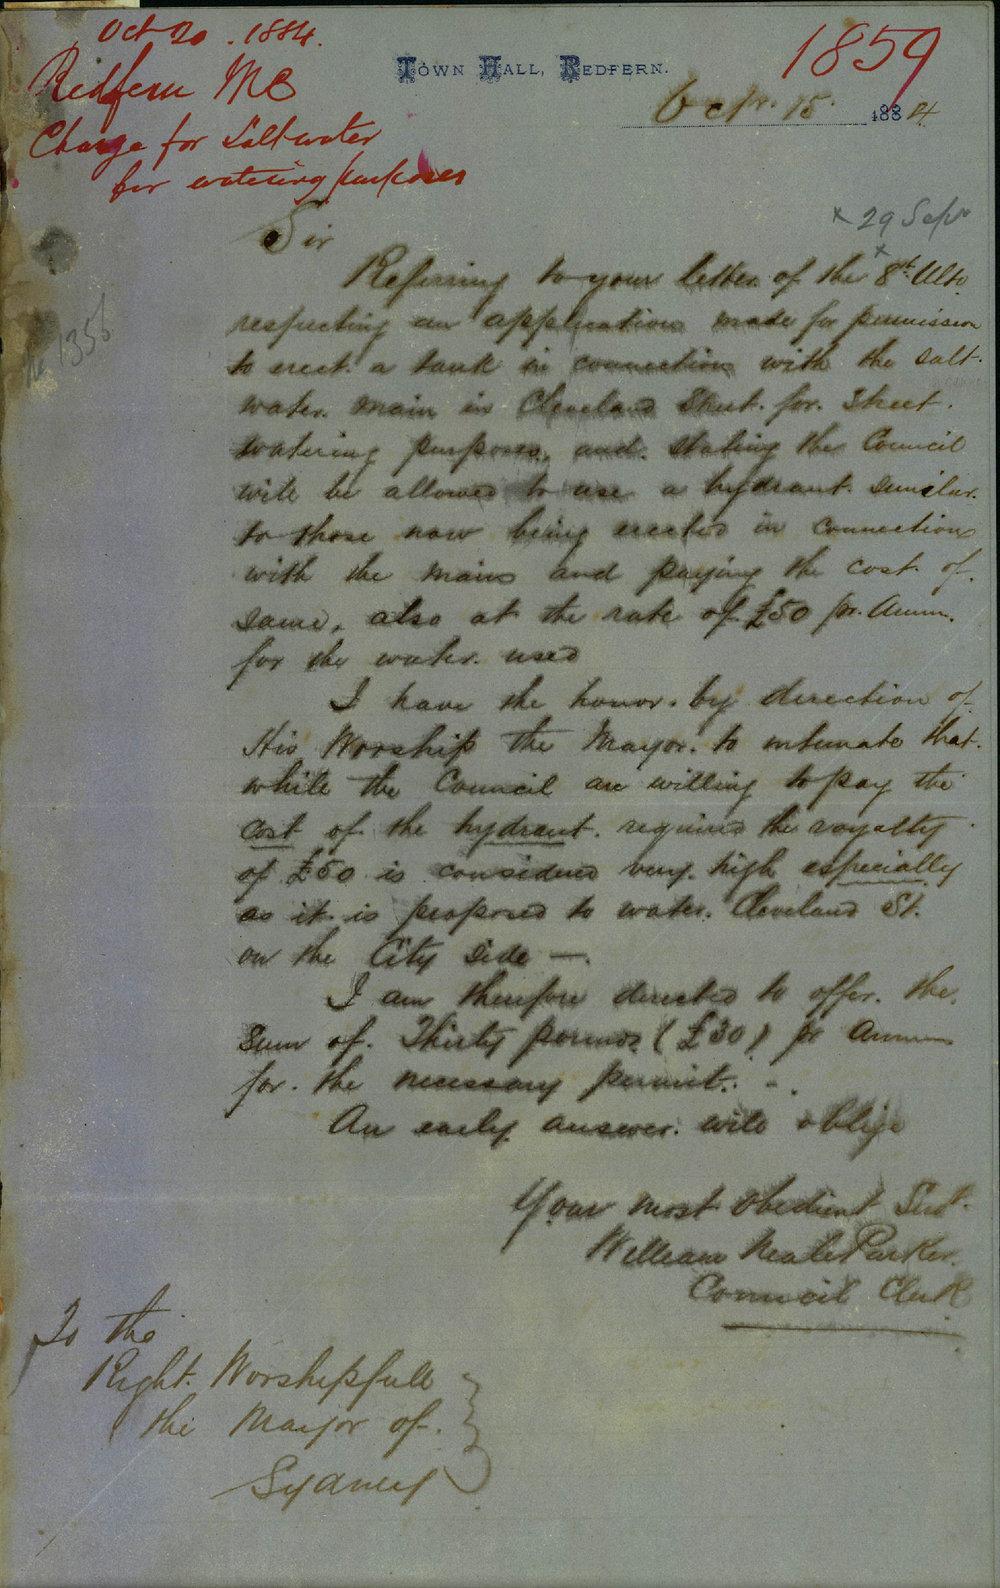 Oct 20. 1884.
Redfern MC
Charge for Saltwater
for watering purposes
1859
TOWN HALL, REDFERN.
Octr. 15 1884
x 29 Sepr
Sir
Referring to your letter of the 8th Ulto
respecting an application made for permission
to erect a tank in connection with the Salt
water main in Cleveland Street for Street
watering purposes, and stating the Council
will be allowed to use a hydrant similar
to those now being erected in connection
with the mains and paying the cost of
same, also at the rate of £50 pr. Annm.
for the water used
I have the honor by direction of
His Worship the Mayor to intimate that
while the Council are willing to pay the
cost of the hydrant required the royalty
of £50 is considered very high especially
as it is proposed to water Cleveland St.
on the City side —.
I am therefore directed to offer the
Sum of Thirty pounds (£30) pr Annum
for the necessary permit. -
An early answer will oblige
Your most obedient Servt.
William Neale Parker.
Council Clerk
To the
Right Worshipfull
the Mayor of
Sydney